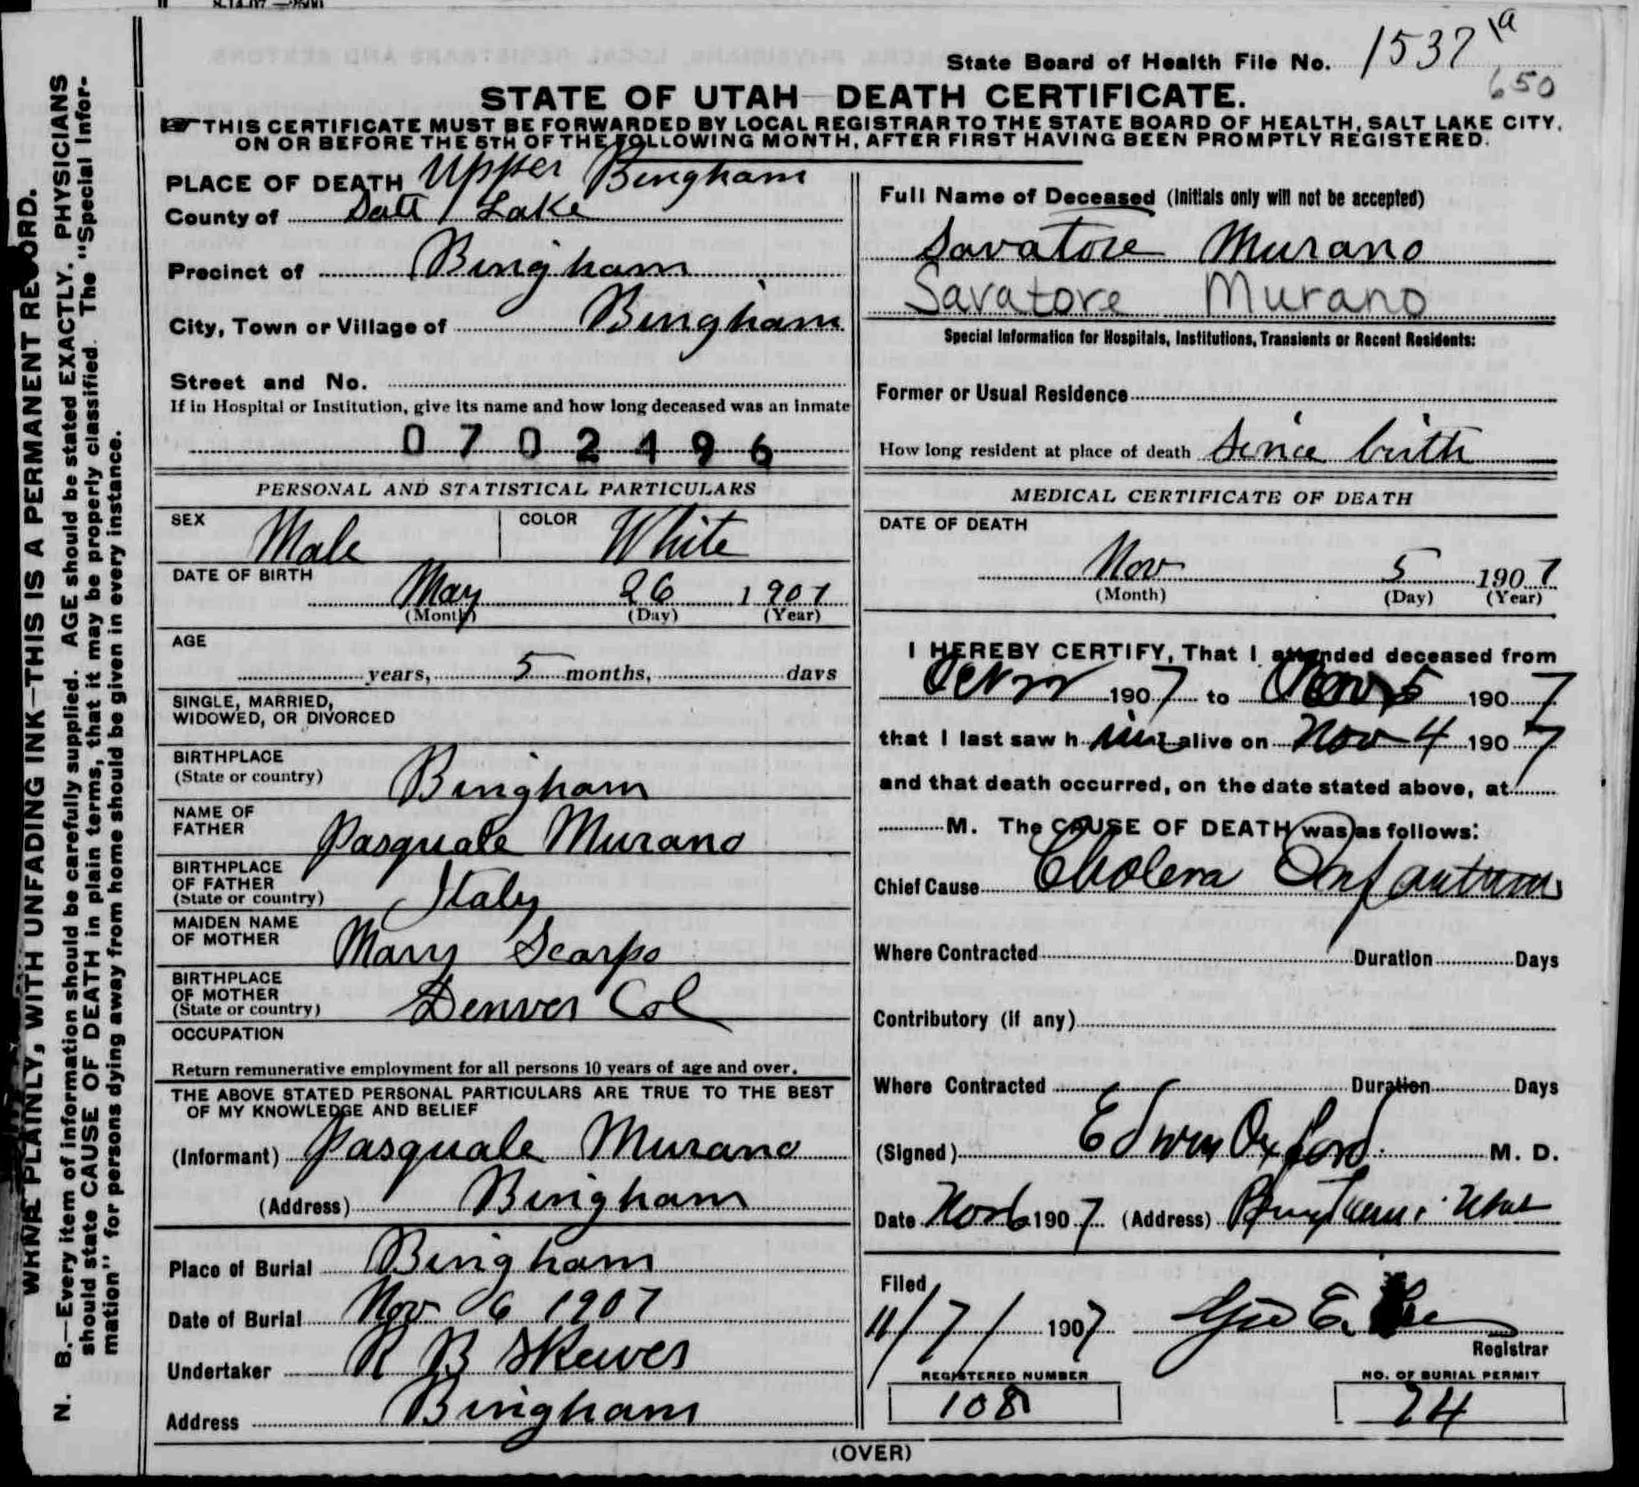 State Board of Health File No. 1537 1a
650
STATE OF UTAH DEATH CERTIFICATE.
THIS CERTIFICATE MUST BE FORWARDED BY LOCAL REGISTRAR TO THE STATE BOARD OF HEALTH, SALT LAKE CITY,
ON OR BEFORE THE 5TH OF THE FOLLOWING MONTH, AFTER FIRST HAVING BEEN PROMPTLY REGISTERED.
WRITE PLAINLY, WITH UNFADING INK—THIS IS A PERMANENT RECORD.
N. B.—Every item of information should be carefully supplied. AGE should be stated EXACTLY. PHYSICIANS
should state CAUSE OF DEATH in plain terms, that it may be properly classified. The "Special Infor-
mation" for persons dying away from home should be given in every instance.
PLACE OF DEATH Upper Bingham
County of Salt Lake
Precinct of Bingham
City, Town or Village of Bingham
Street and No.
If in Hospital or Institution, give its name and how long deceased was an inmate
0702496
PERSONAL AND STATISTICAL PARTICULARS
SEX Male COLOR White
DATE OF BIRTH
May 26 1907
(Month) (Day) (Year)
AGE
years, 5 months, days
SINGLE, MARRIED,
WIDOWED, OR DIVORCED
BIRTHPLACE
(State or country) Bingham
NAME OF
FATHER Pasquale Murano
BIRTHPLACE
OF FATHER
(State or country) Italy
MAIDEN NAME
OF MOTHER Mary Scarpo
BIRTHPLACE
OF MOTHER
(State or country) Denver Col
OCCUPATION
Return remunerative employment for all persons 10 years of age and over.
THE ABOVE STATED PERSONAL PARTICULARS ARE TRUE TO THE BEST
OF MY KNOWLEDGE AND BELIEF
(Informant) Pasquale Murano
(Address) Bingham
Place of Burial Bingham
Date of Burial Nov 6 1907
Undertaker R B Skewes
Address Bingham
Full Name of Deceased (Initials only will not be accepted)
Savatore Murano
Savatore Murano
Special Information for Hospitals, Institutions, Transients or Recent Residents:
Former or Usual Residence
How long resident at place of death Since birth
MEDICAL CERTIFICATE OF DEATH
DATE OF DEATH
Nov 5 1907
(Month) (Day) (Year)
I HEREBY CERTIFY, That I attended deceased from
1907 to Nov 5 1907
that I last saw h im alive on Nov 4 1907
and that death occurred, on the date stated above, at
M. The CAUSE OF DEATH was as follows:
Chief Cause Cholera Infantum
Where Contracted Duration Days
Contributory (if any)
Where Contracted Duration Days
(Signed) Edwin Oxford. M. D.
Date Nov 6 1907 (Address) Bingham Utah
Filed
11/7/ 1907 Geo E.
Registrar
REGISTERED NUMBER
108
NO. OF BURIAL PERMIT
74
(OVER)